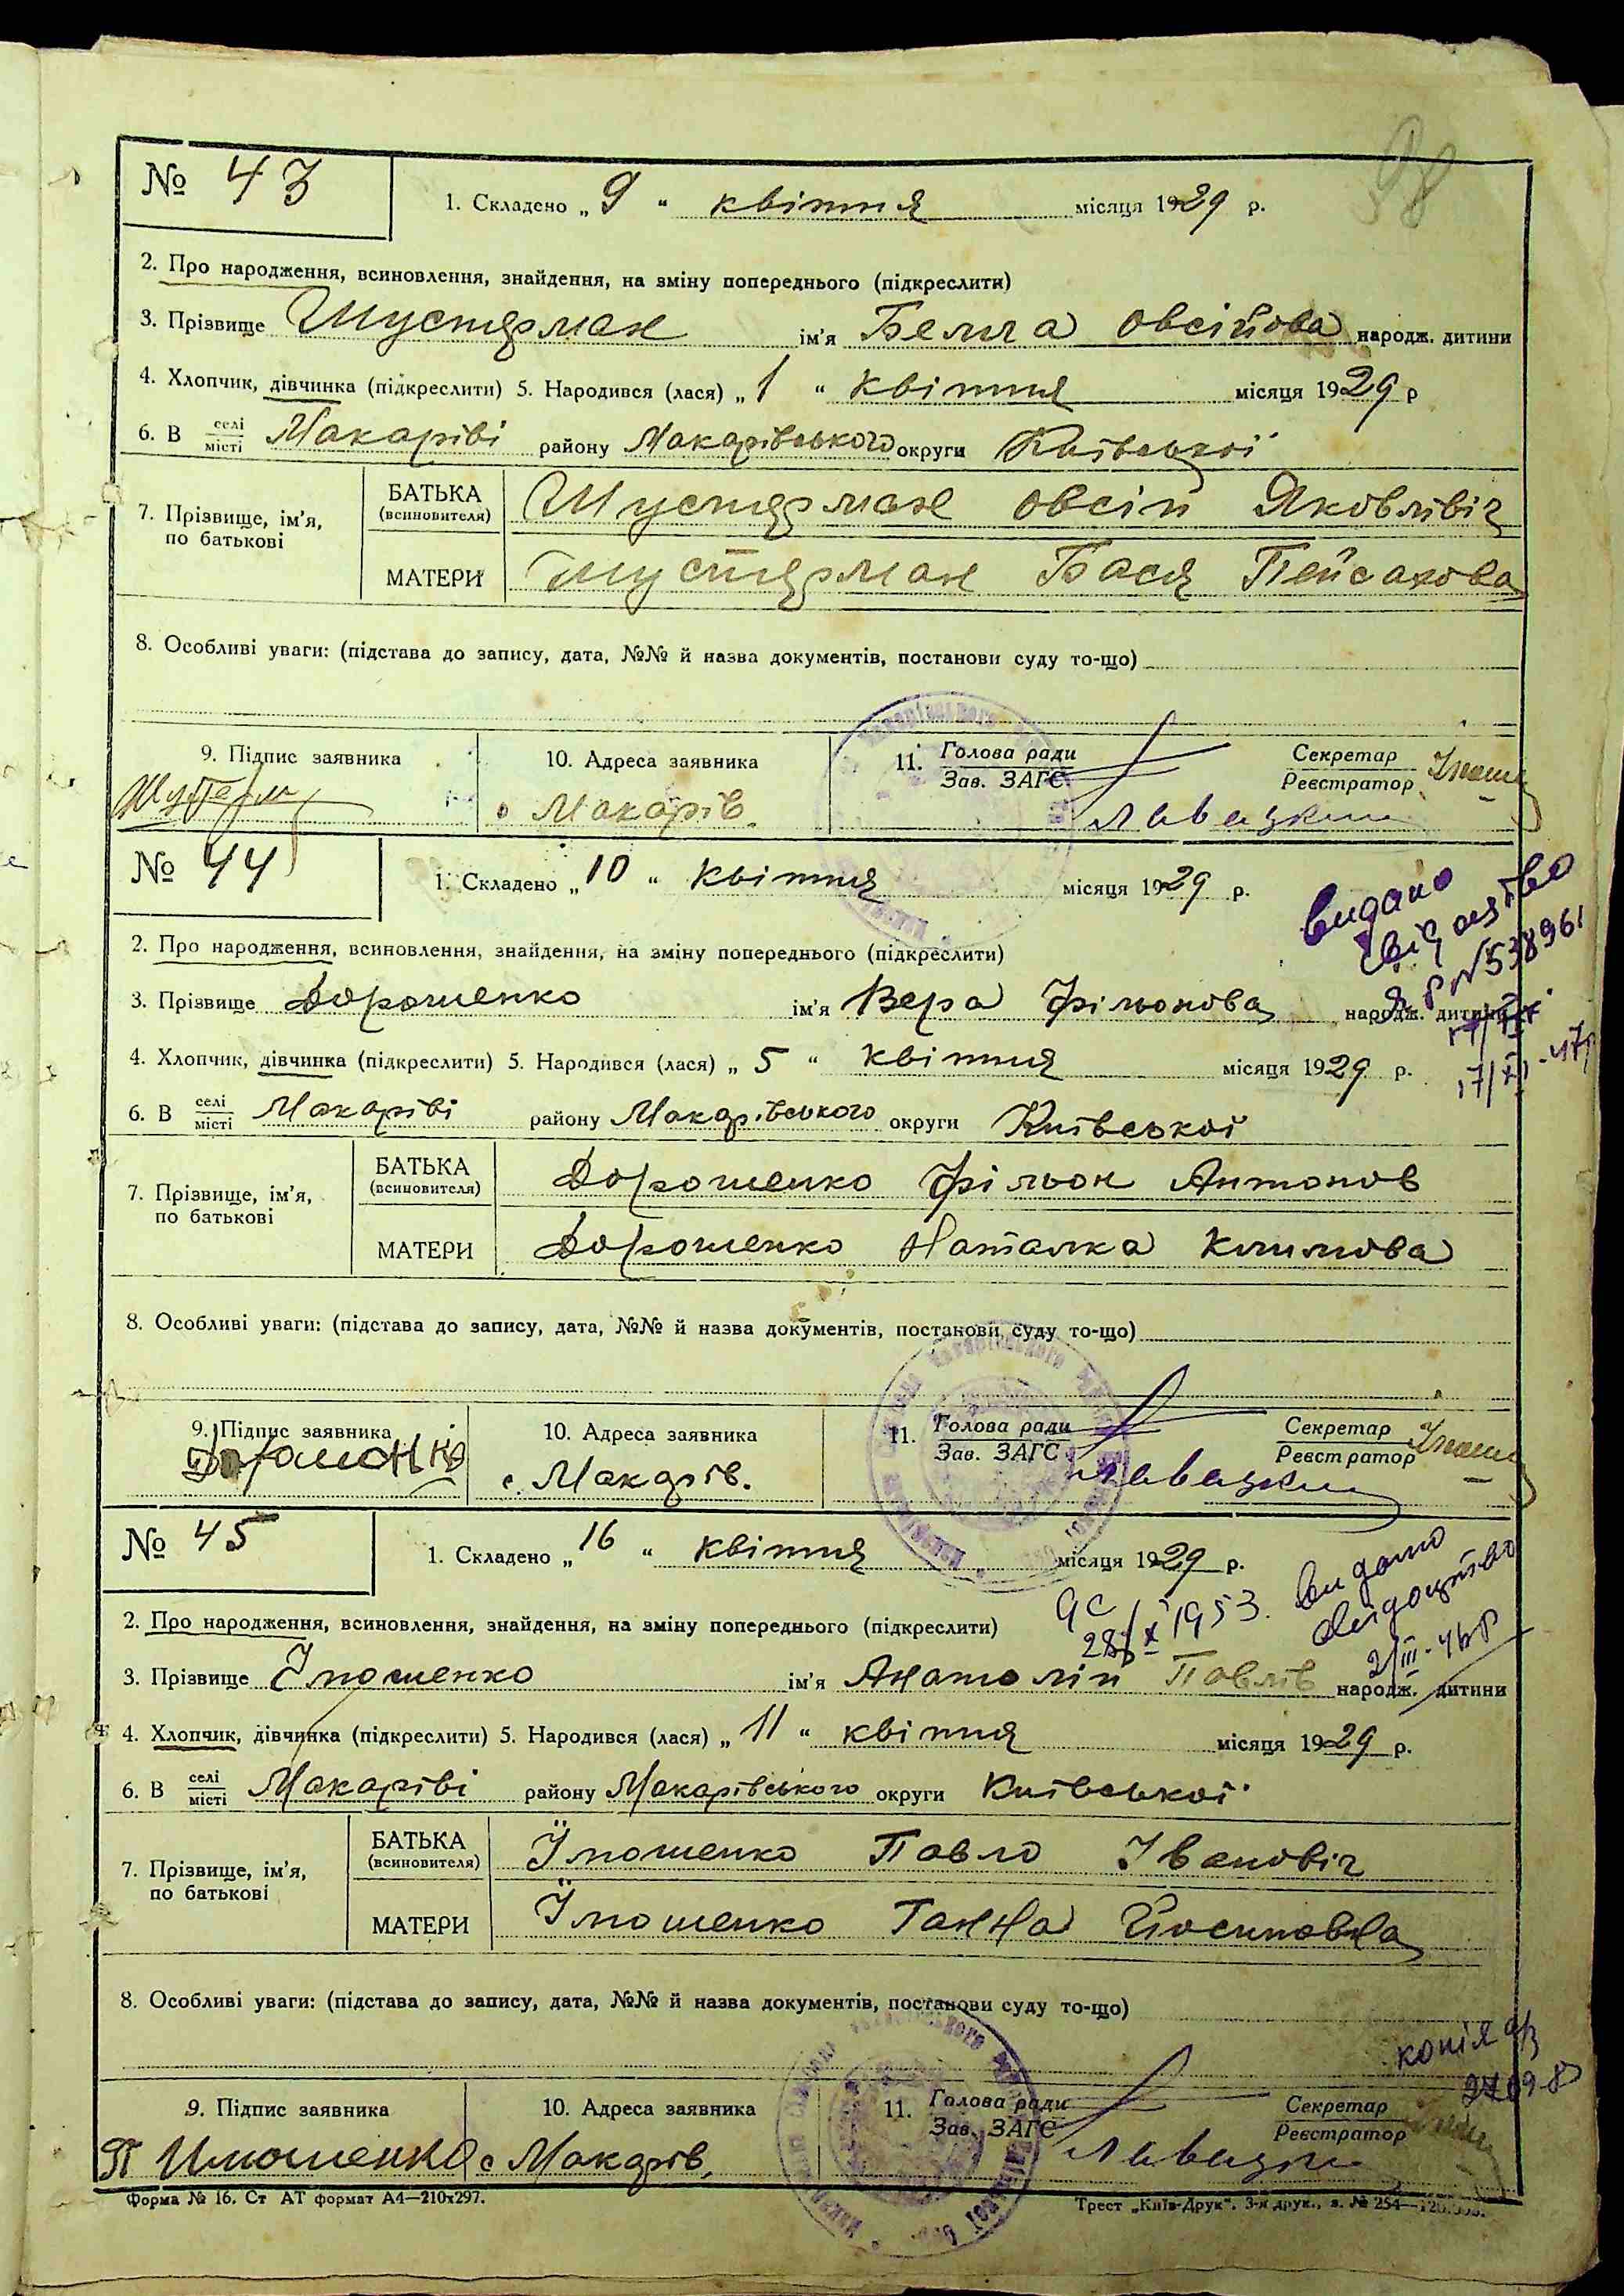 98
№ 43
1. Складено „ 9 “ квітня місяця 1929 р.
2. Про народження, всиновлення, знайдення, на зміну попереднього (підкреслити)
3. Прізвище Шустярман ім’я Белла Овсійова народж. дитини
4. Хлопчик, дівчинка (підкреслити) 5. Народився (лася) „ 1 “ квітня місяця 1929 р
6. В селі місті Макарові району Макарівського округи Київської
7. Прізвище, ім’я, по батькові
БАТЬКА (всиновителя) Шустярман Овсій Яковлівіч
МАТЕРИ Шустярман Бася Пейсахова
8. Особливі уваги: (підстава до запису, дата, №№ й назва документів, постанови суду то-що)
9. Підпис заявника
10. Адреса заявника
11. Голова ради Зав. ЗАГС
Секретар Реєстратор
с Макарів.
№ 44
1. Складено „ 10 “ квітня місяця 1929 р.
видано
свідоцтво
№538961
2. Про народження, всиновлення, знайдення, на зміну попереднього (підкреслити)
3. Прізвище Дорошенко ім’я Вера Фільонова народж. дитини
17/XI-47р
4. Хлопчик, дівчинка (підкреслити) 5. Народився (лася) „ 5 “ квітня місяця 1929 р.
6. В селі місті Макарові району Макарівського округи Київської
7. Прізвище, ім’я, по батькові
БАТЬКА (всиновителя) Дорошенко Фільон Антонов
МАТЕРИ Дорошенко Наталка Климова
8. Особливі уваги: (підстава до запису, дата, №№ й назва документів, постанови суду то-що)
9. Підпис заявника
10. Адреса заявника
11. Голова ради Зав. ЗАГС
Секретар Реєстратор
с. Макарів.
№ 45
1. Складено „ 16 “ квітня місяця 1929 р.
28/X 1953. видано
свідоцтво
2/III-46р
2. Про народження, всиновлення, знайдення, на зміну попереднього (підкреслити)
3. Прізвище Ілюшенко ім’я Анатолій Павлів народж. дитини
4. Хлопчик, дівчинка (підкреслити) 5. Народився (лася) „ 11 “ квітня місяця 1929 р.
6. В селі місті Макарові району Макарівського округи Київської
7. Прізвище, ім’я, по батькові
БАТЬКА (всиновителя) Ілюшенко Павло Івановіч
МАТЕРИ Ілюшенко Ганна Йосиповна
8. Особливі уваги: (підстава до запису, дата, №№ й назва документів, постанови суду то-що)
копія
9. Підпис заявника
10. Адреса заявника
11. Голова ради Зав. ЗАГС
Секретар Реєстратор
с Макарів.
Форма № 16. Ст АТ формат А4—210х297.
Трест „Київ-Друк“. 3-я друк., з. № 254—120.000.